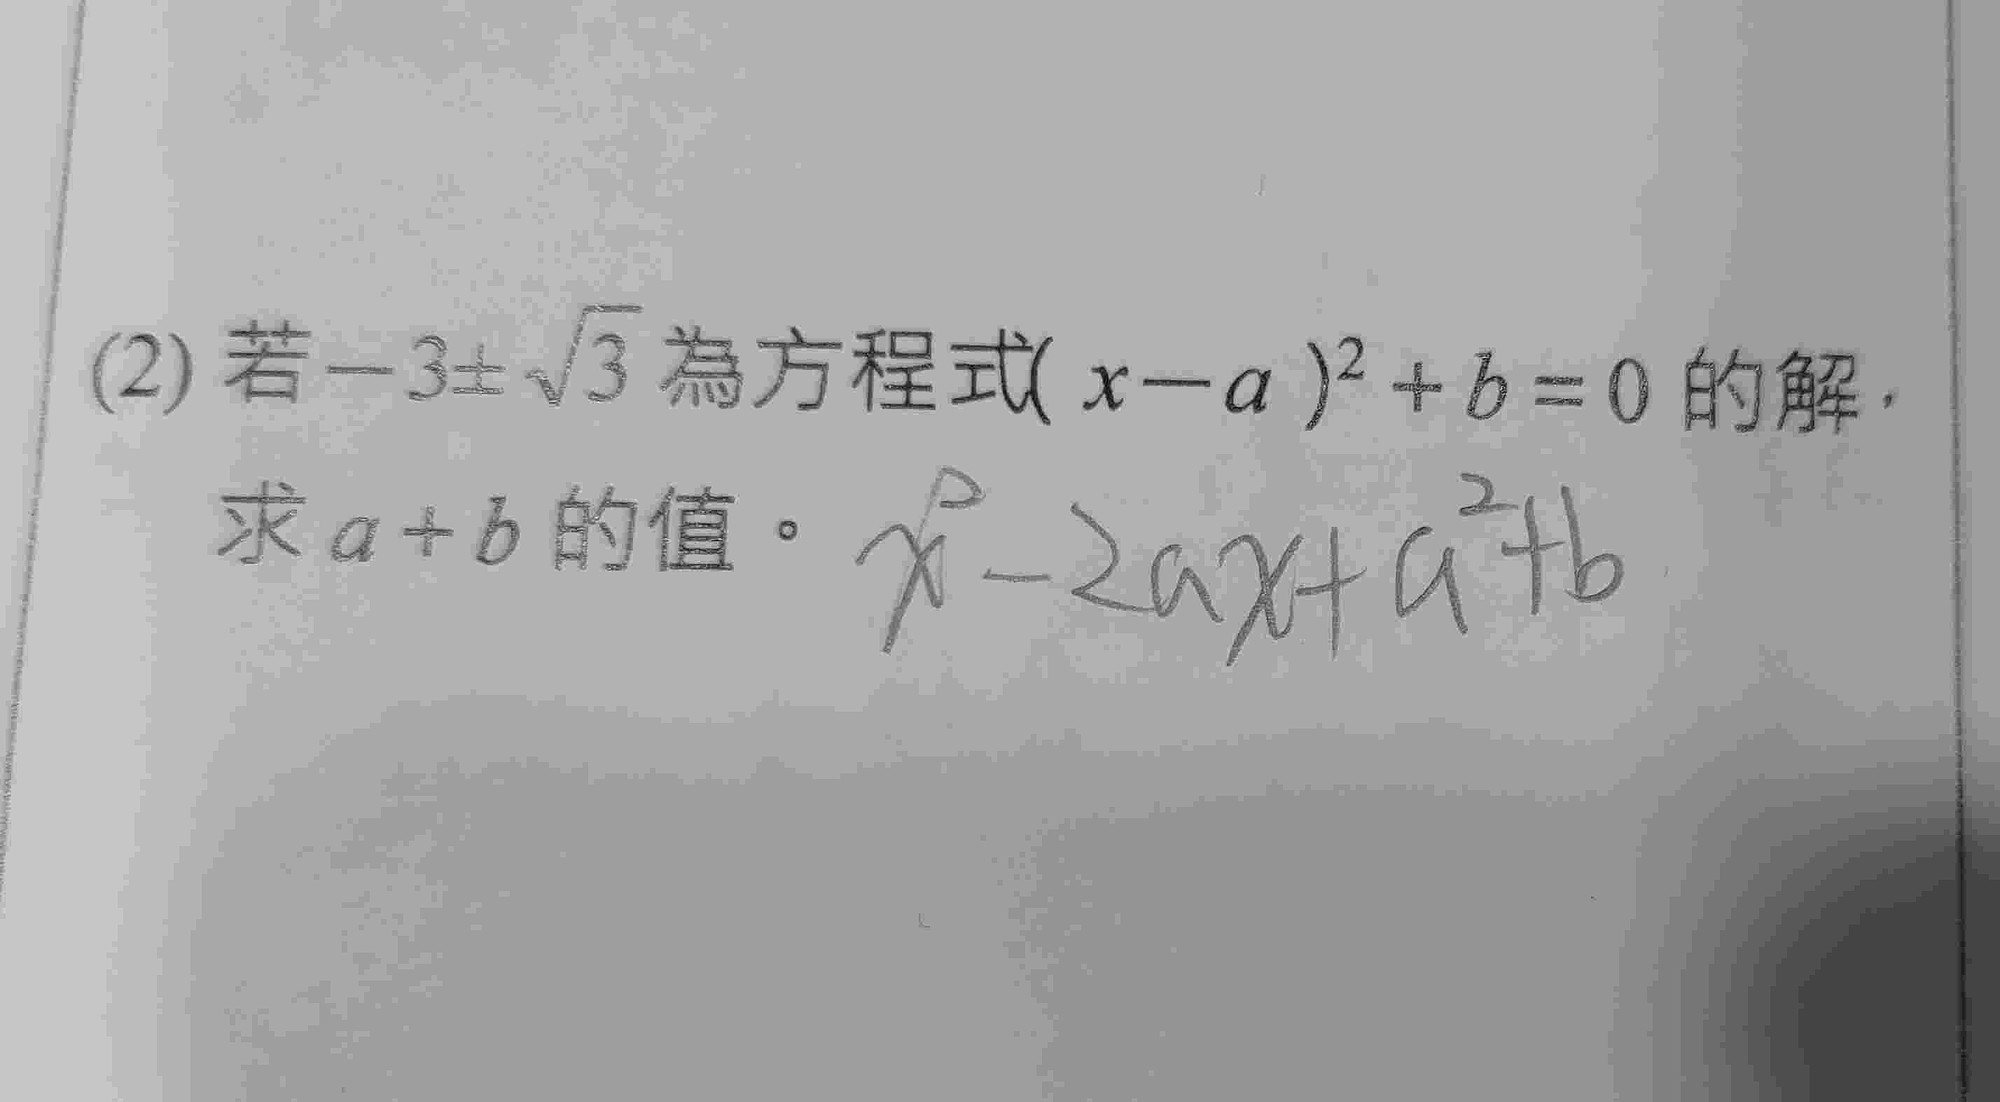 (2) 若－3±√3 為方程式( x－a )²＋b＝0 的解，
求 a＋b 的值。 x²－2ax+a²+b